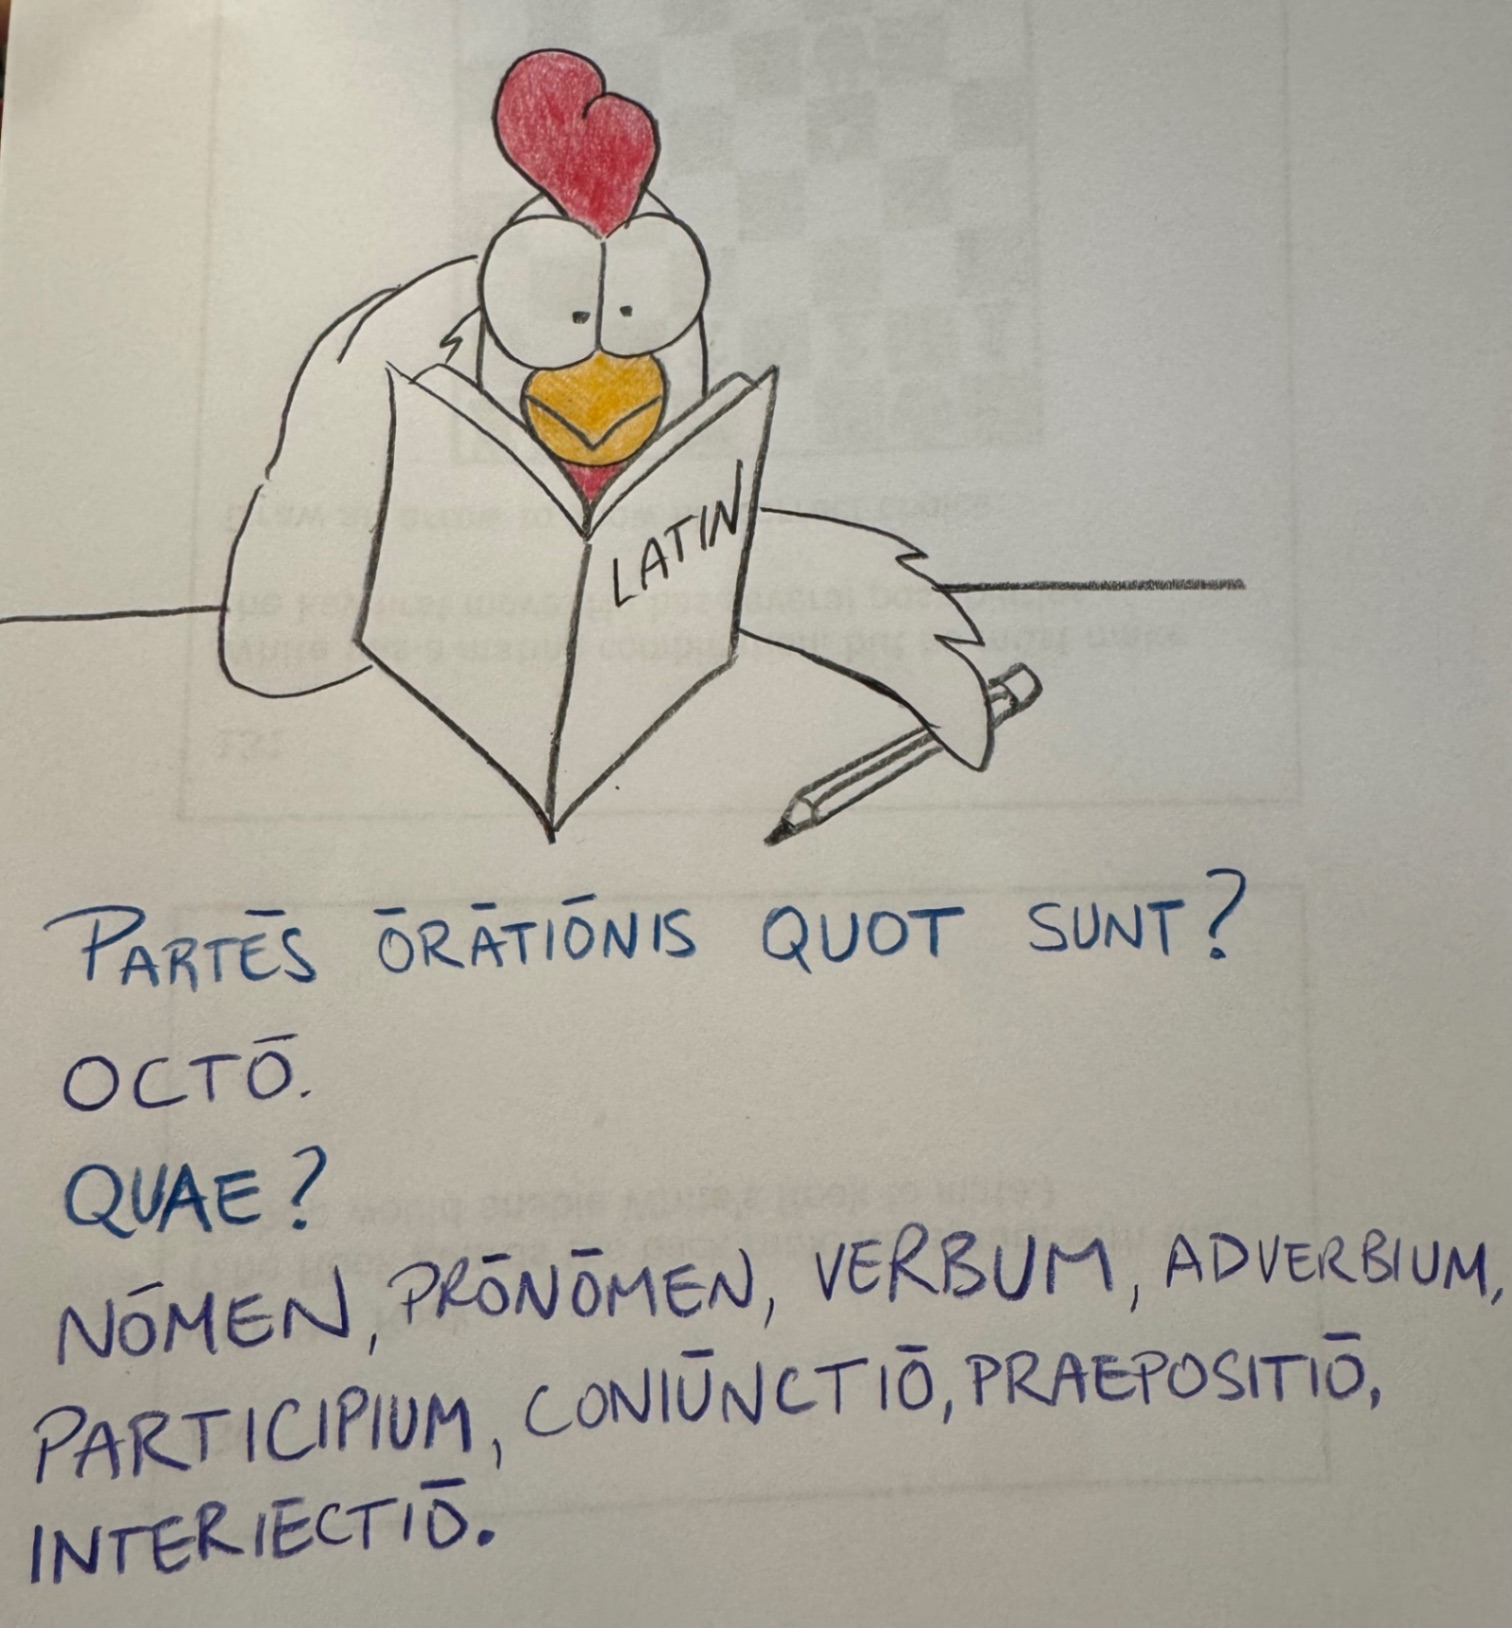 LATIN
PARTĒS ŌRĀTIŌNIS QUOT SUNT?
OCTŌ.
QUAE?
NŌMEN, PRŌNŌMEN, VERBUM, ADVERBIUM,
PARTICIPIUM, CONIŪNCTIŌ, PRAEPOSITIŌ,
INTERIECTIŌ.